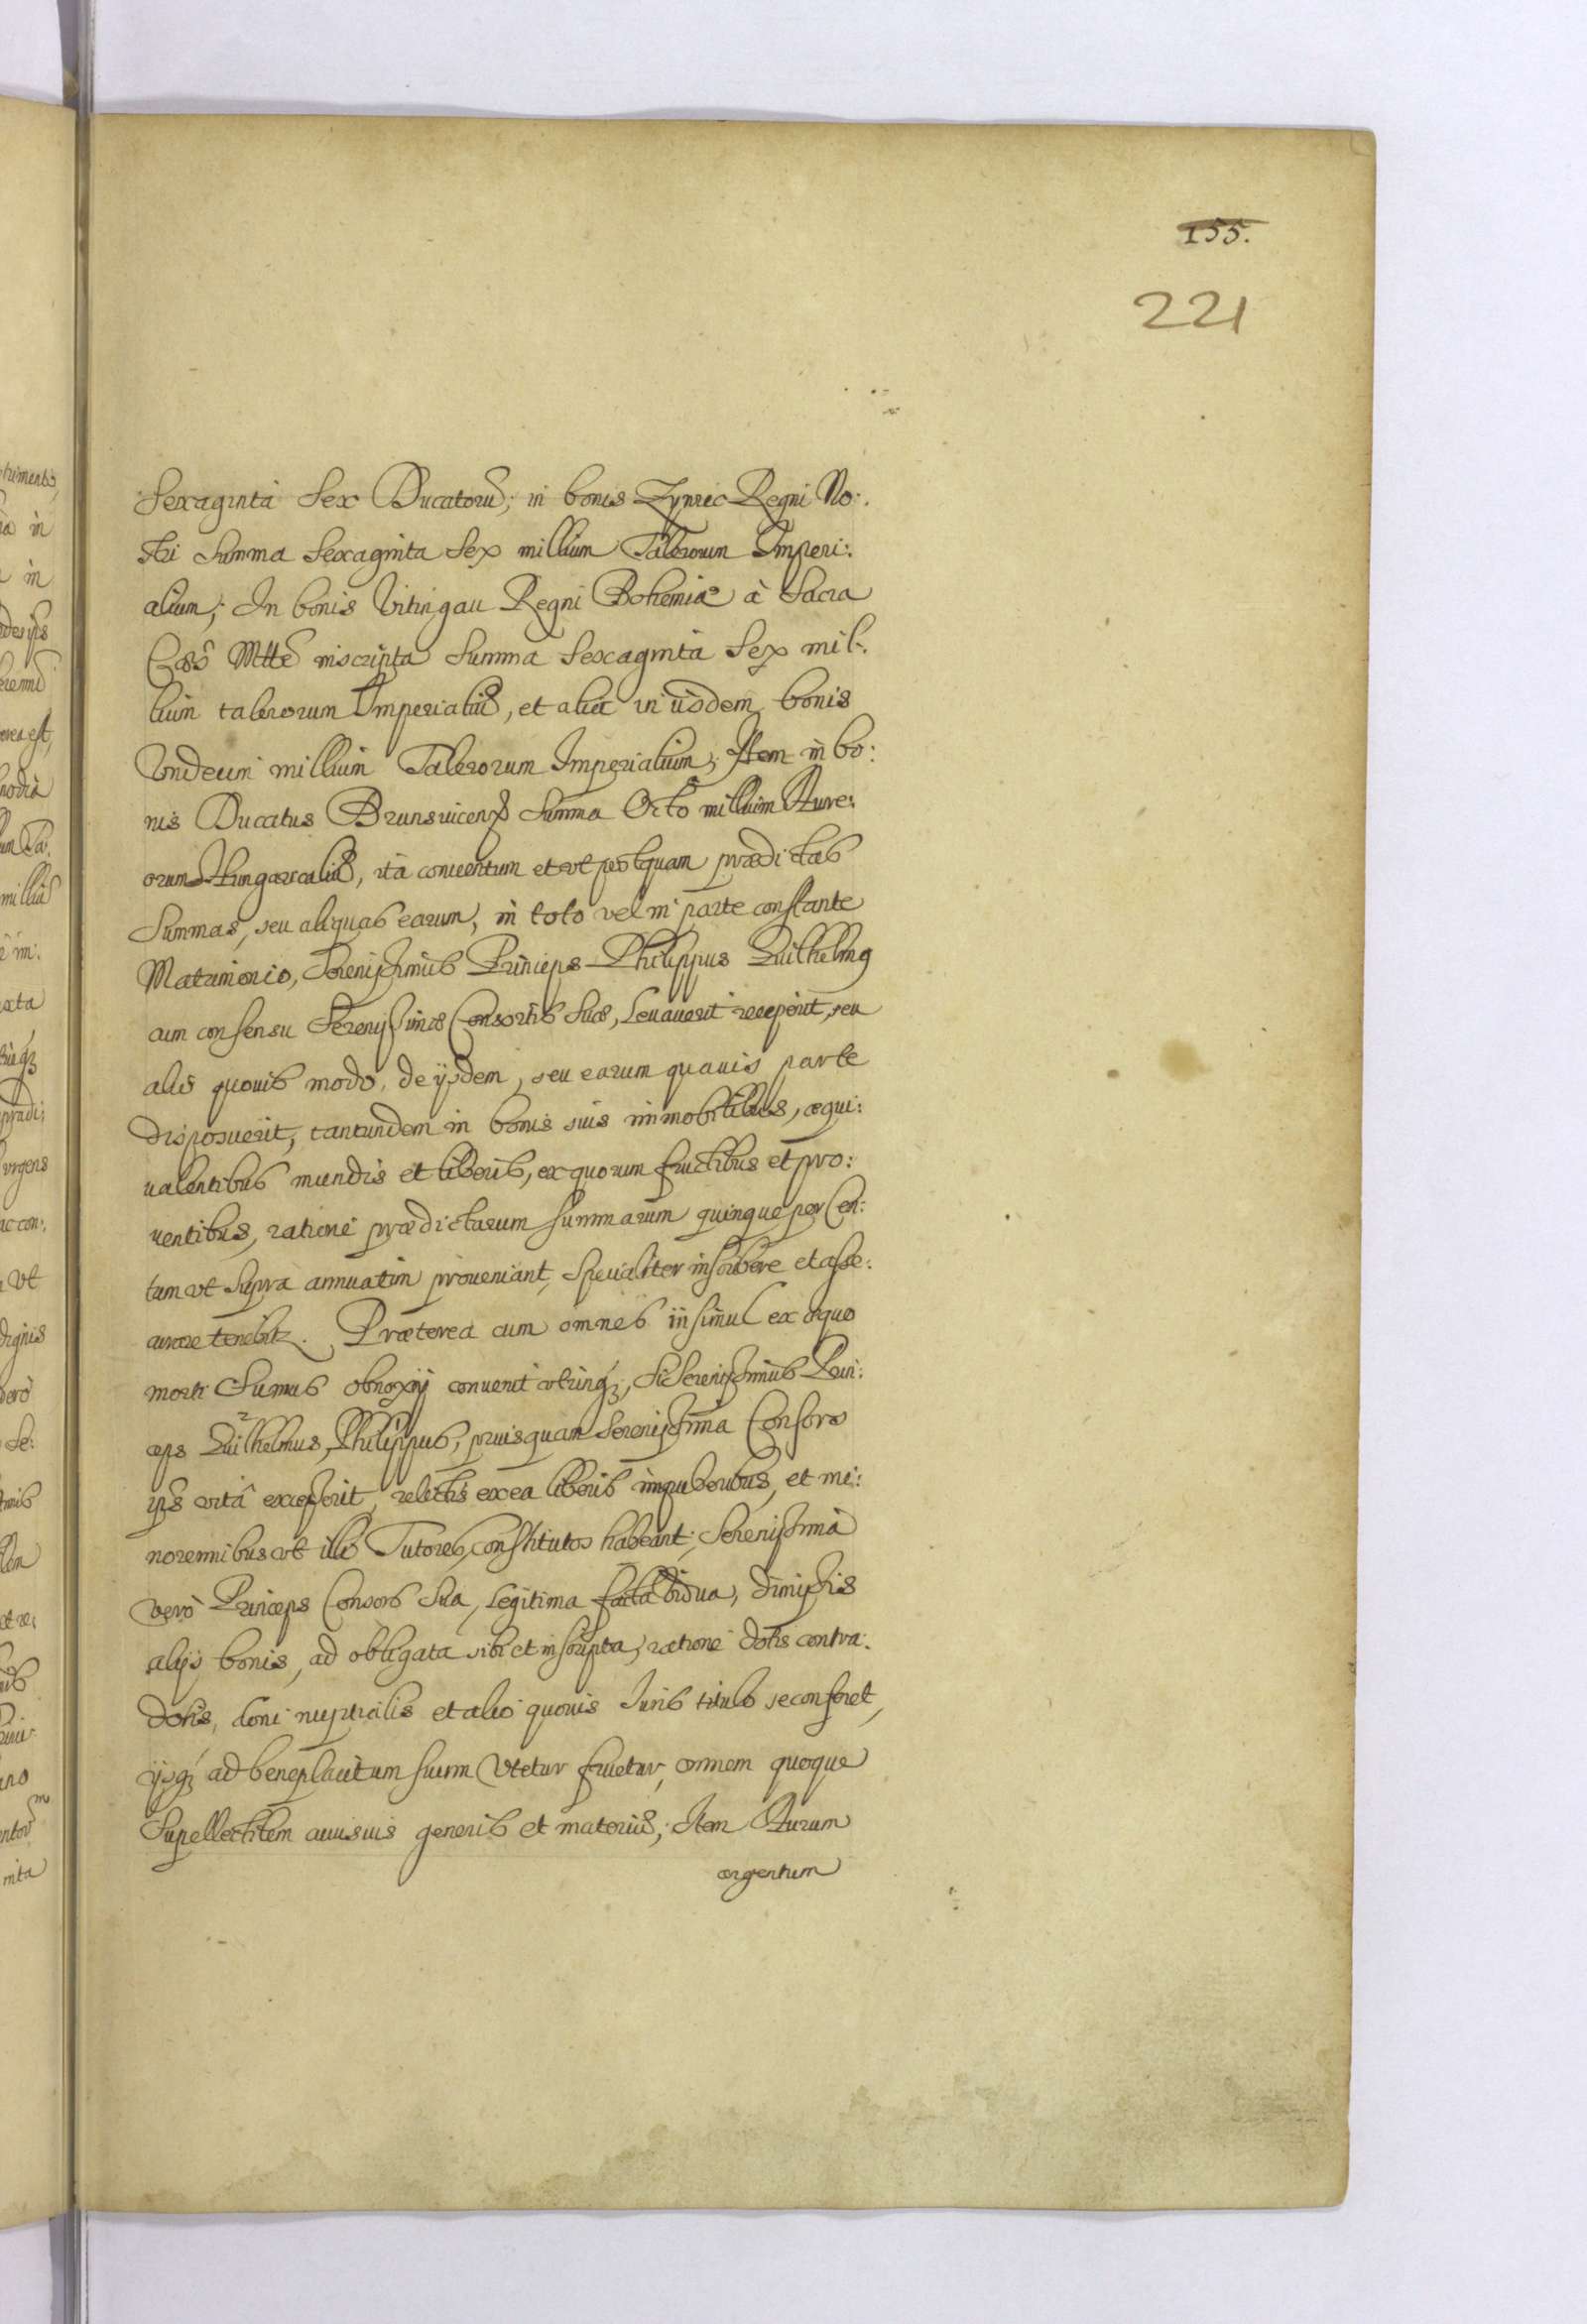 155.
221
Sexaginta Sex Ducatorū; in bonis Zynric Regni No:
stri Summa Sexaginta Sex millium Talerorum Imperi:
alium; In bonis Vitingau Regni Bohemiæ à Sacra
Cæsˢ Mtte inscripta Summa Sexaginta Sex mil:
lium talerorum Imperialiū, et alia in iisdem bonis
Vndecim millium Talerorum Imperialium; Item in bo:
nis Ducatus Brunsuicens Summa Octo millium Aure:
orum Hungaricaliū, ita conventum et vt postquam prædictas
Summas, seu aliquas earum, in toto vel in parte constante
Matrimonio, Serenissimus Princeps Philippus Wilhelmꝯ
cum consensu Serenissimæ Consortis Suæ, Leuauerit receperit, seu
alis quouis modo, de ijsdem, seu earum quauis parte
disposuerit, tantundem in bonis suis immobilibus, æqui:
ualentibus mundis et liberis, ex quorum fructibus et pro:
uentibus, ratione prædictarum summarum quinque per Cen:
tum vt supra annuatim proueniant, specialiter inscribere et asse:
curare tenebitr. Præterea cum omnes insimul ex æquo
morti Sumus obnoxij conuenit vtrinqꝫ, si Serenissimus Prin:
ceps Wilhelmus, Philippus, priusquam Serenissima Consors
ipˢ vitâ excesserit, relictis ex ea liberis impuberibus, et mi:
norennibus vt illi Tutores constitutos habeant; Serenissima
verò Princeps Consors Sua, Legitima facta Vidua, dimissis
alijs bonis, ad obligata sibi et inscripta, ratione dotis contra:
dotis, doni nuptialis et alio quouis Iuris titulo se conferet,
ijsqꝫ ad beneplacitum suum Vtetur fruetur, omnem quoque
Supellectilem cuiusuis generis et materiæ, Item Aurum
argentum